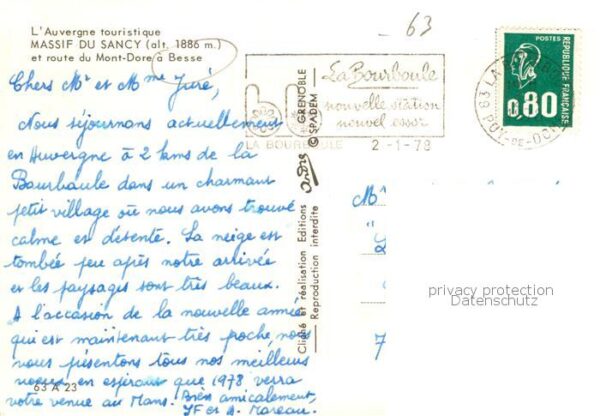 63
L'Auvergne touristique
MASSIF DU SANCY (alt. 1886 m.)
et route du Mont-Dore à Besse
Chers Mr et Mme Juré,
Nous séjournons actuellement
en Auvergne à 2 kms de la
Bourboule dans un charmant
petit village où nous avons trouvé
calme et détente. La neige est
tombée peu après notre arrivée
et les paysages sont très beaux.
A l'occasion de la nouvelle année
qui est maintenant très proche, nous
vous présentons tous nos meilleurs
voeux en espérant que 1978 verra
votre venue au Mans. Bien amicalement,
JF et A. Mareau.
63 A 23
La Bourboule
nouvelle station
nouvel essor
LA BOURBOULE 2-1-78
POSTES
REPUBLIQUE FRANÇAISE
0,80
63 LA
PUY-DE-DOME
GRENOBLE
© SPADEM
andré
Cliché et réalisation Editions
Reproduction interdite
Mr
"
7
privacy protection
Datenschutz